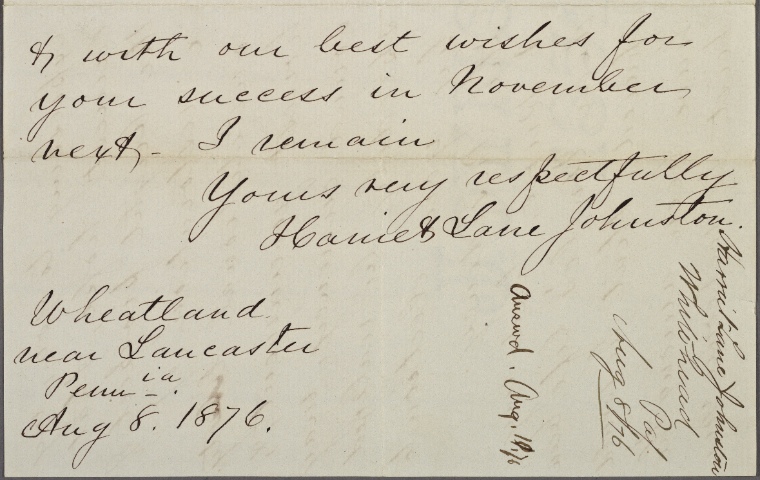 & with our best wishes for
your success in November
next, - I remain
Yours very respectfully
Harriet Lane Johnston.
Wheatland
near Lancaster
Penn-ia.
Aug 8. 1876.
Answd. Aug.
Harriet Lane Johnston
Pa/
Aug 8/76